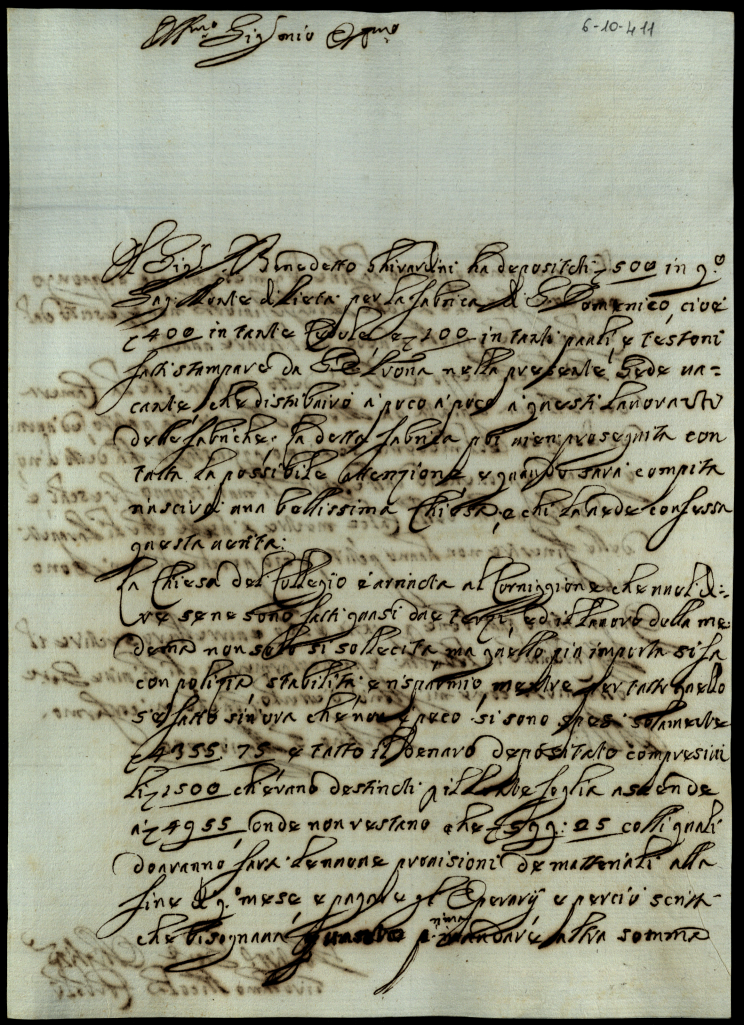 6-10-411
Sig.r Benedetto Ghirardini ha depositati 500 in q.o
Monte di Pietà per la fabrica di S. Domenico, cioè
400 in tante Cedule e 100 in tanti paoli e testoni
fatti stampare da nella presente Sede va=
cante, che distribuirò a poco a poco a questi Lavoranti
delle fabriche. La detta fabrica poi vien proseguita con
tutta la possibile attenzione, e quando sarà compita
riuscirà una bellissima Chiesa, e chi la vede confessa
questa verità.
La Chiesa del Collegio è arrivata al Cornicione che vuol di=
re se ne sono fatti quasi due terzi, ed il lavoro della me
dema non solo si sollecita ma quello più importa si fa
con polizia stabilità e risparmio, mentre per tutto quello
s'è fatto sin'ora che non è poco si sono spesi solamente
4355: 75 e tutto il Denaro depositato compresivi
li 1500 ch'erano destinati p il foglia ascende
a 4955 onde non restano che 599: 25 colli quali
dovranno farsi le nuove provisioni de materiali alla
fine di q.o mese e pagare gl'Operarij e perciò
che bisognarà mandare altra somma